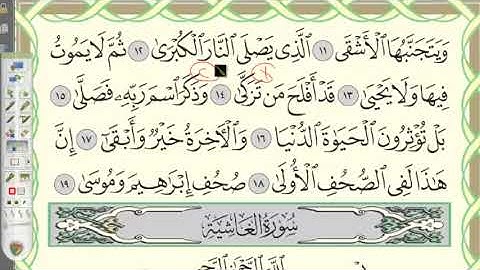 وَيَتَجَنَّبُهَا ٱلْأَشْقَى ١١ ٱلَّذِى يَصْلَى ٱلنَّارَ ٱلْكُبْرَىٰ ١٢ ثُمَّ لَا يَمُوتُ
فِيهَا وَلَا يَحْيَىٰ ١٣ قَدْ أَفْلَحَ مَن تَزَكَّىٰ ١٤ وَذَكَرَ ٱسْمَ رَبِّهِۦ فَصَلَّىٰ ١٥
بَلْ تُؤْثِرُونَ ٱلْحَيَوٰةَ ٱلدُّنْيَا ١٦ وَٱلْأَخِرَةُ خَيْرٌ وَأَبْقَىٰٓ ١٧ إِنَّ
هَٰذَا لَفِى ٱلصُّحُفِ ٱلْأُولَىٰ ١٨ صُحُفِ إِبْرَٰهِيمَ وَمُوسَىٰ ١٩
سُورَةُ الْغَاشِيَةِ
ٱللَّهِ ٱلرَّحْمَٰنِ ٱلرَّحِيمِ